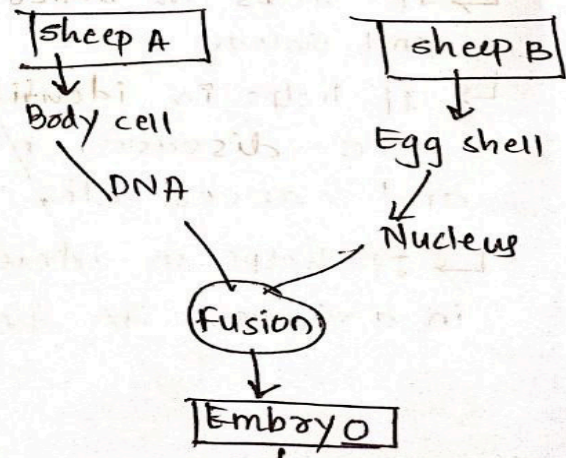 Sheep A
Sheep B
Body cell
Egg shell
DNA
Nucleus
fusion
Embryo